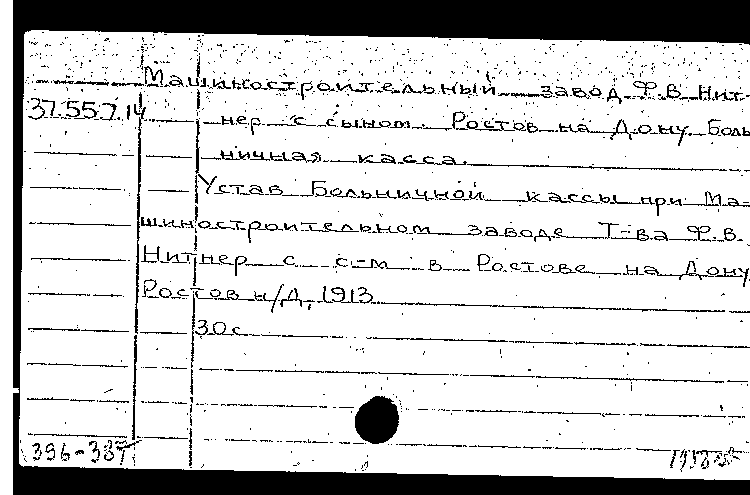 Машиностроительный завод Ф.В. Нит-
37.55.7.14
нер с сыном. Ростов на Дону. Боль
ничная касса.
Устав Больничной кассы при Ма-
шиностроительном заводе Т-ва Ф.В.
Нитнер с с-м в Ростове на Дону
Ростов н/Д, 1913
30 с
396-387